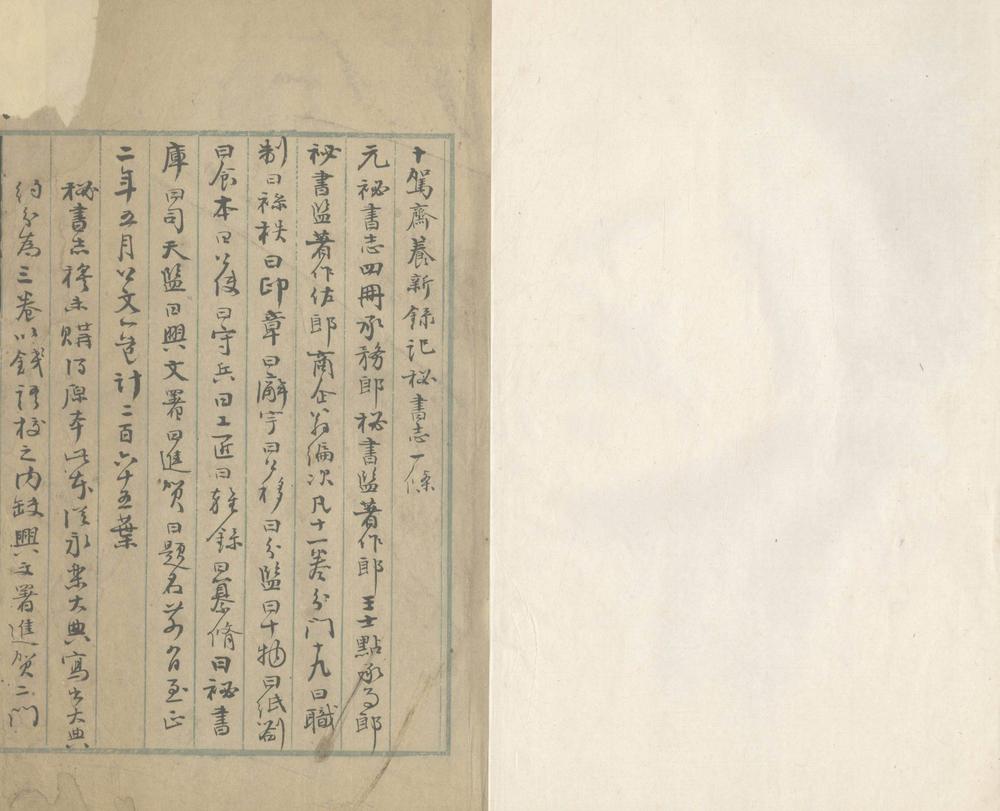 十駕齋養新錄記秘書志一條
元祕書志四冊承務郎秘書監著作郎王士點承事郎
祕書監著作佐郎商企翁編次凡十一卷分门十九曰職
制曰祿秩曰印章曰廨宇曰公移曰分監曰什物曰紙劄
曰食本曰公使曰守兵曰工匠曰雜錄曰纂脩曰祕書
庫曰司天監曰興文署曰進賀曰題名前有至正
二年五月公文一道計二百六十五葉
秘書志移未購得原本此本從永樂大典寫出大典
約分為三卷以錢語校之内缺興文署進贺二门